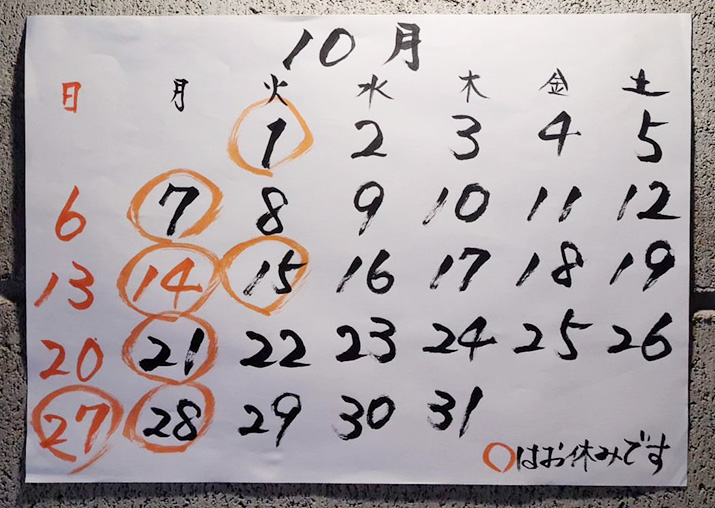 10月
日 月 火 水 木 金 土
1 2 3 4 5
6 7 8 9 10 11 12
13 14 15 16 17 18 19
20 21 22 23 24 25 26
27 28 29 30 31
○はお休みです